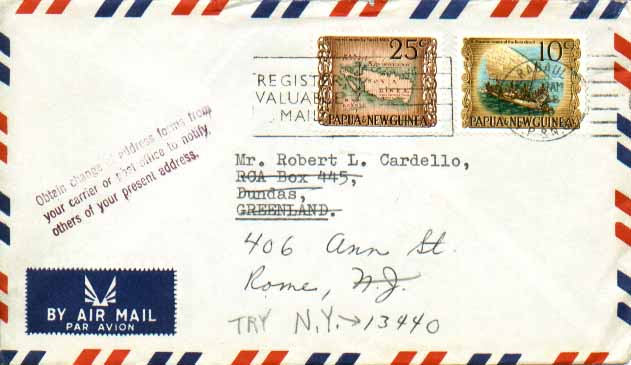 25c
10c
PAPUA & NEW GUINEA
PAPUA & NEW GUINEA
REGISTER
VALUABLE
MAIL
RABAUL
Obtain change of address forms from
your carrier or post office to notify
others of your present address.
Mr. Robert L. Cardello,
RCA Box 445,
Dundas,
GREENLAND.
406 Ann St.
Rome, N.J.
TRY N.Y. → 13440
BY AIR MAIL
PAR AVION